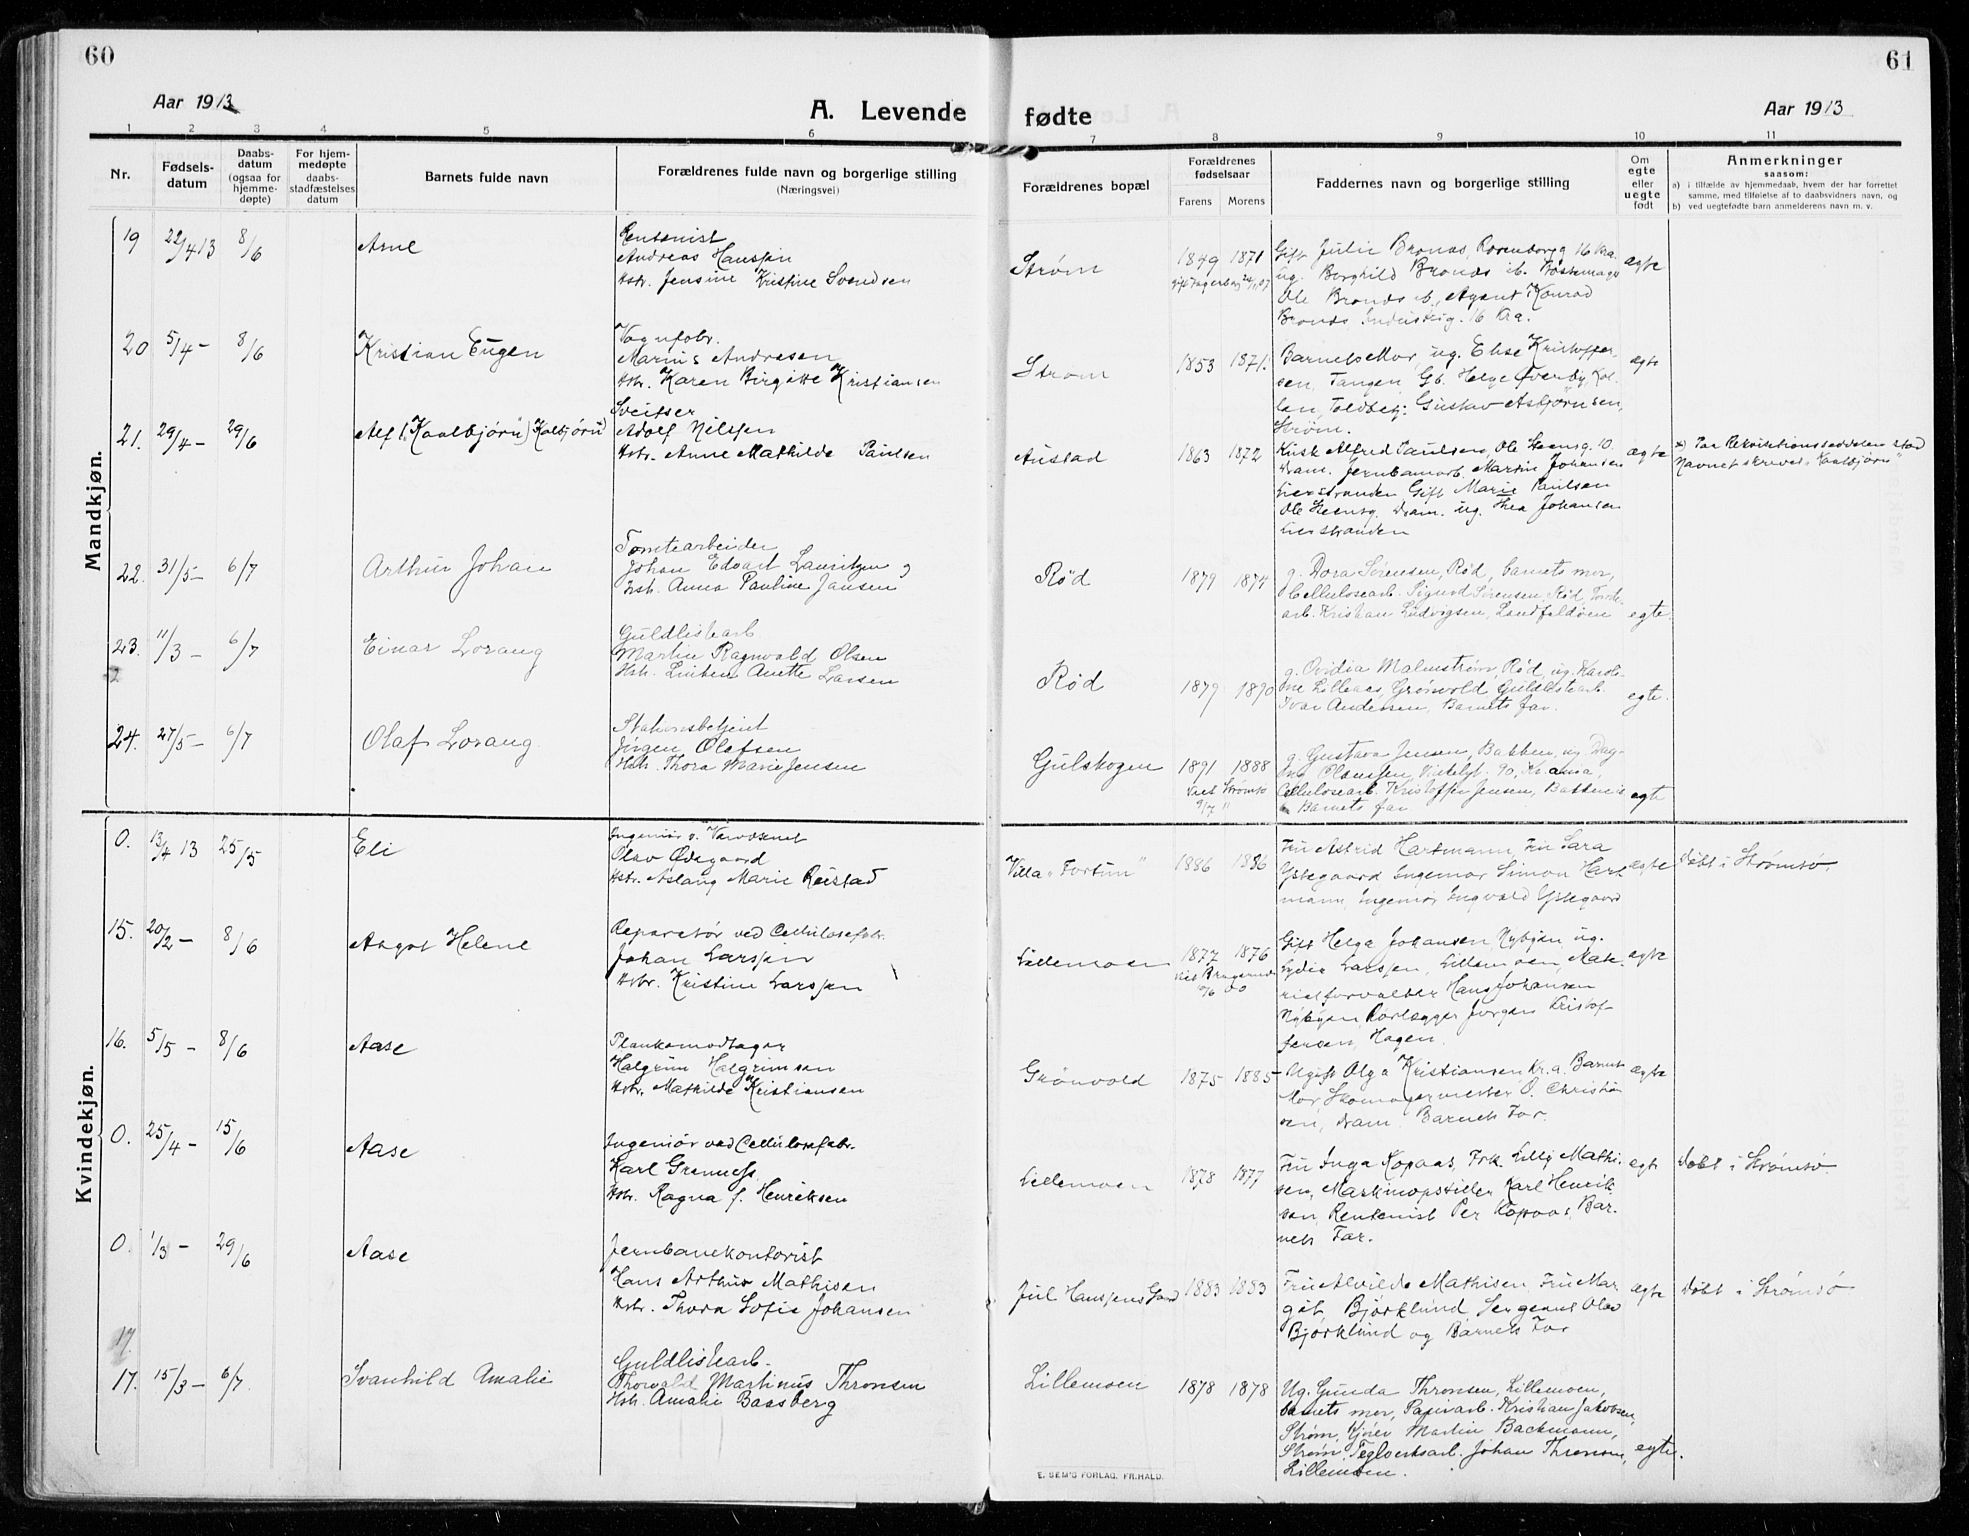 60
61
Aar 1913
A. Levende fødte
Aar 1913
1 2 3 4 5 6 7 8 9 10 11
Nr.
Fødsels-
datum
Daabs-
datum
(ogsaa for
hjemme-
døpte)
For hjem-
medøpte
daabs-
stadfæstelses
datum
Barnets fulde navn
Forældrenes fulde navn og borgerlige stilling
(Næringsvei)
Forældrenes bopæl
Forældrenes
fødselsaar
Farens Morens
Faddernes navn og borgerlige stilling
Om
egte
eller
uegte
født
Anmerkninger
saasom:
a) i tilfælde av hjemmedaab, hvem der har forrettet
samme, med tilføielse af to daabsvidners navn, og
b) ved uegtefødte barn anmelderens navn m. v.
Mandkjøn.
19 22/4 13 8/6 Arne
Rentenist
Andreas Hanssen
Hstr. Jensine Kristine Svendsen
Strøm 1849 1871
Gift Julie Bronds, Rosenborgg 16 Kra.
ug. Borghild Bronds ib.
Ole Bronds ib., Agent Konrad
Bronds, Industrig. 16 Kra.
egte
20 5/4 – 8/6 Kristian Eugen
Vognfabr.
Marius Andresen
Hstr. Karen Birgitte Kristiansen
Strøm 1853 1871.
Barnets Mor, ug. Else Kristoffer-
sen, Tangen, Gb. Helge Øverby, Kol-
len, Toldbetj: Gustav Asbjørnsen,
Strøm.
egte
21. 29/4 – 29/6 Alf ("Kaalbjørn") Kolbjørn
Sveitser
Adolf Nilssen
Hstr. Anne Mathilde Paulsen
Austad 1863 1872
Kusk Alfred Paulsen, Ole Steensg. 10.
Dram. Jernbanearb. Martin Johansen
Lierstranden Gift Marie Paulsen
Ole Steensg. Dram. ug. Thea Johansen
Lierstranden
egte
x) Paa Rekvisitionsseddelen stod
Navnet skrevet "Kaalbjørn"
22. 31/5 – 6/7 Arthur Johan
Tomtearbeider
Johan Edvart Lauritzen og
Hstr. Anna Pauline Jansen
Rød 1879 1874
g. Dora Sørensen, Rød, barnets mor,
Cellulosearb. Sigurd Sørensen, Rød, Tomte-
arb. Kristian Ludvigsen, Landfaldøen
egte.
23. 11/3 – 6/7 Einar Lorang
Guldlistearb.
Martin Ragnvald Olsen
Hstr. Anette Larsen
Rød 1879 1890
g. Ovidia Malmstrøm, Rød, ug. Karoli-
ne Lilleaas, Grønvold Guldlistearb.
Ivar Andersen, Barnets far.
egte.
24. 27/5 – 6/7 Olaf Lorang
Stationsbetjent
Jørgen Olafsen
Hstr. Thora Marie Jensen
Gulskogen 1891 1888
g. Gustava Jensen, Bakken, ug. Dag-
ny Olaussen, 90, Kr.ania,
Cellulosearb. Kristoffer Jensen, Bakken
Barnets far
egte
Kvindekjøn.
0. 13/4 13 25/5 Eli
Ingeniør v. Veivæsenet
Olav Ødegaard
Hstr. Aslaug Marie Reistad
Villa "Fortun" 1886 1886
Fru Astrid Hartmann, Fru Sara
Ystegaard Ingeniør Simon Hart
mann, Ingeniør Ingvald Ystegaard
egte
Døbt i Strømsø.
15. 20/2 – 8/6 Aagot Helene
Reparatør ved Cellulosefabr.
Johan Larssen
Hstr. Kristine Larssen
Lillemoen 1877 1876
Gift Helga Johansen Nybyen, ug.
Lydia Larssen, Lillemoen, Mate-
rialforvalter Hans Johansen
Nybyen, Rørlægger Jørgen Kristof-
fersen, Hagen.
egte
16. 5/5 – 8/6 Aase
Plankemodtager
Halgrim Halgrimsen
Hstr. Mathilde Kristiansen
Grønvold 1875 1885
Ugift Olga Kristiansen, Kr.a. Barnets
Mor, Skomagermester O. Christian
sen, Dram. Barnets Far.
egte
0. 25/4 – 15/6 Aase
Ingeniør ved Cellulosefabr.
Karl Gremness
Hstr. Ragna f. Henriksen
Lillemoen 1878 1877
Fru Inga Kopaas, Frk. Lilly Mathi-
sen, Maskinopstiller Karl Henrik
sen, Rentenist Per Kopaas, Bar-
nets Far.
egte
Døbt i Strømsø.
0. 1/3 – 29/6 Aase
Jernbanekontorist
Hans Arthur Mathisen
Hstr. Thora Sofie Johansen
Jul Hanssens Gaard 1883 1883
Fru Alvilde Mathisen, Fru Mar-
git Bjørklund Sergeant Olav
Bjørklund og Barnets Far
egte
Døbt i Strømsø
17.
17. 15/3 – 6/7. Svanhild Amalie
Guldlistearb.
Thorvald Martinus Thronsen
Hstr. Amalie Baasberg
Lillemoen 1878 1878
Ug. Gunda Thronsen, Lillemoen,
barnets mor, Papirarb. Kristian Jakobsen,
Strøm, Kjører Martin Backmann,
Strøm, Teglverksarb. Johan Thronsen,
Lillemoen.
egte.
E. SEM'S FORLAG. FR.HALD.